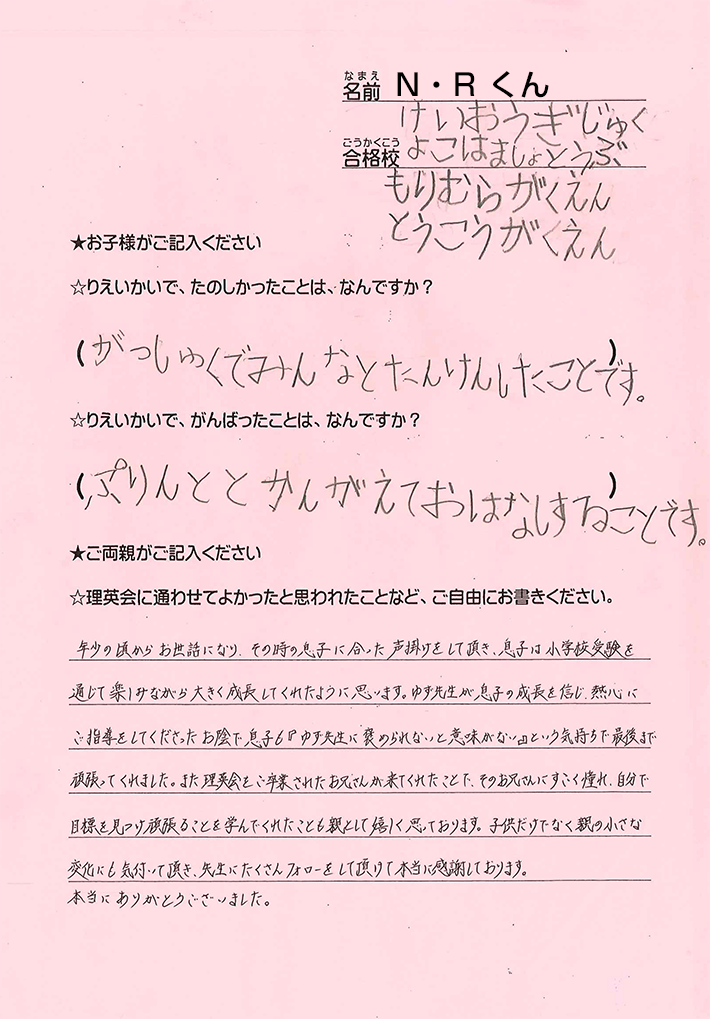 なまえ
名前 N・Rくん
けいおうぎじゅく
ごうかくこう
合格校 よこはましょとうぶ
もりむらがくえん
とうこうがくえん
★お子様がご記入ください
☆りえいかいで、たのしかったことは、なんですか？
（がっしゅくでみんなとたんけんしたことです。）
☆りえいかいで、がんばったことは、なんですか？
（ぷりんととかんがえておはなしすることです。）
★ご両親がご記入ください
☆理英会に通わせてよかったと思われたことなど、ご自由にお書きください。
年少の頃からお世話になり、その時の息子に合った声掛けをして頂き、息子は小学校受験を
通じて楽しみながら大きく成長してくれたように思います。ゆず先生が息子の成長を信じ、熱心に
ご指導をしてくださったお陰で息子も『ゆず先生に褒められないと意味がない』という気持ちで最後まで
頑張ってくれました。また理英会をご卒業されたお兄さんが来てくれたことで、そのお兄さんにすごく憧れ、自分で
目標を見つけ頑張ることを学んでくれたことも親として嬉しく思っております。子供だけでなく親の小さな
変化にも気付いて頂き、先生にたくさんフォローをして頂けて本当に感謝しております。
本当にありがとうございました。